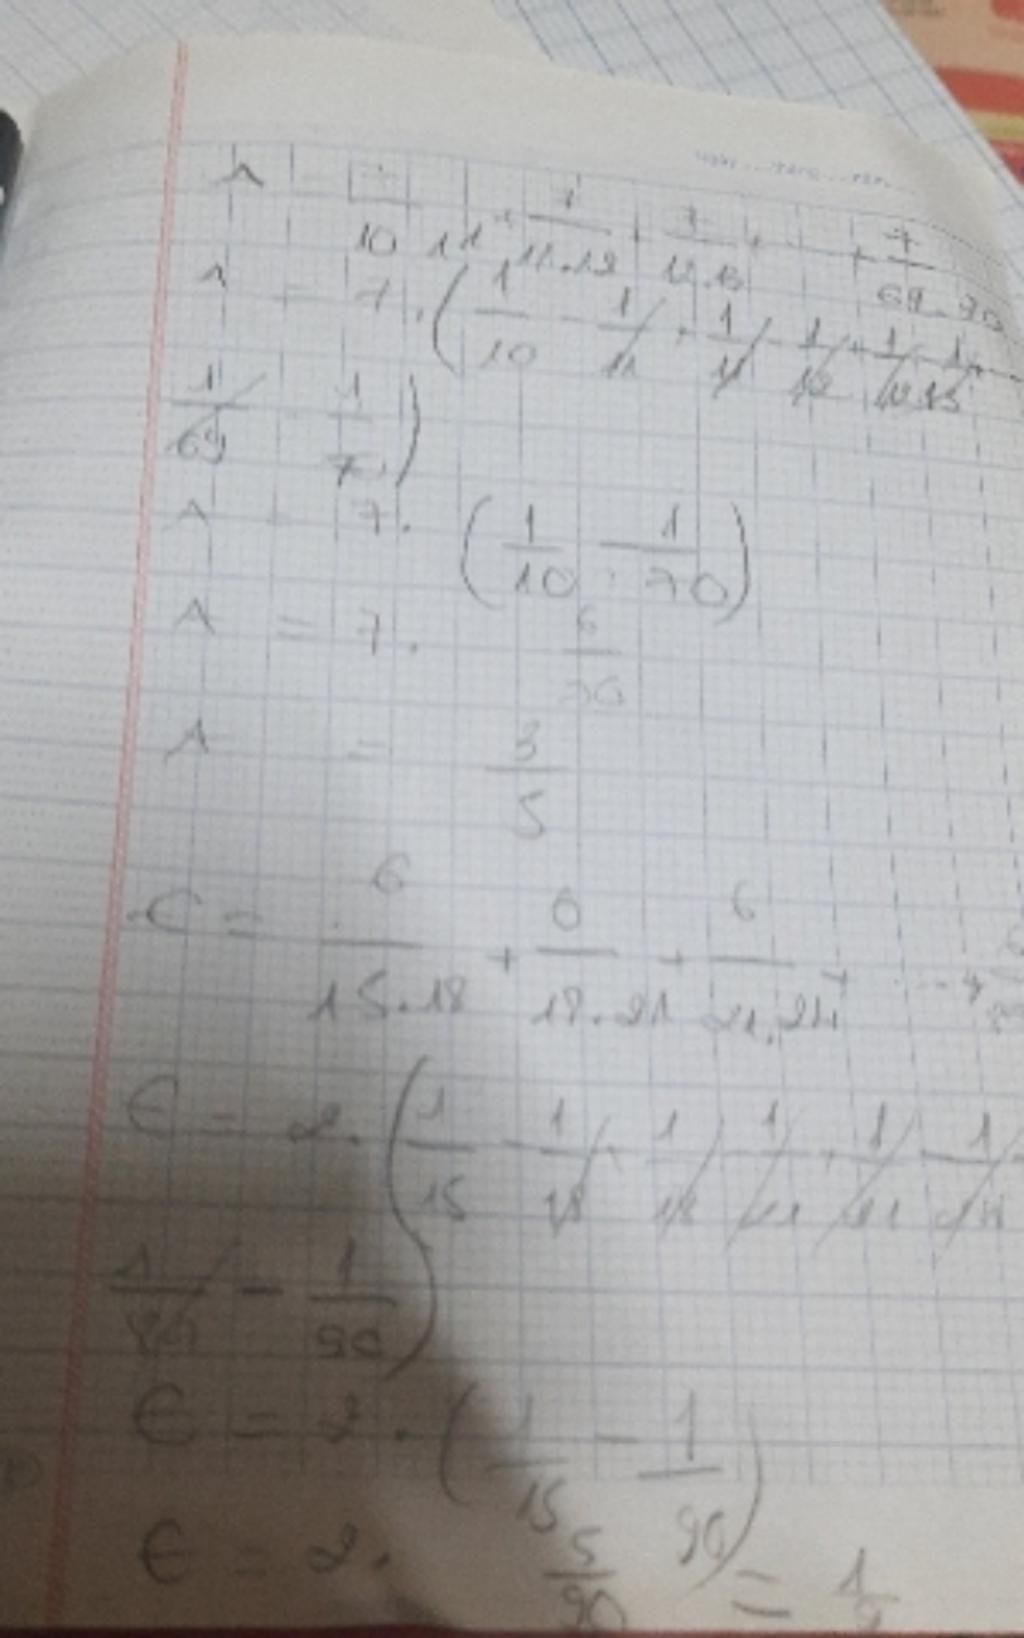 A = 7/10.11 + 7/11.12 + 7/12.13 + ... + 7/69.70
A = 7.(1/10 - 1/11 + 1/11 - 1/12 + 1/12 - 1/13 +
1/69 - 1/70)
A = 7.(1/10 - 1/70)
A = 7. 6/70
A = 3/5
C = 6/15.18 + 6/18.21 + 6/21.24 + ... +
C = 2.(1/15 - 1/18 + 1/18 - 1/21 + 1/21 - 1/24
- 1/90)
C = 2.(1/15 - 1/90)
C = 2. 5/90 = 1/9